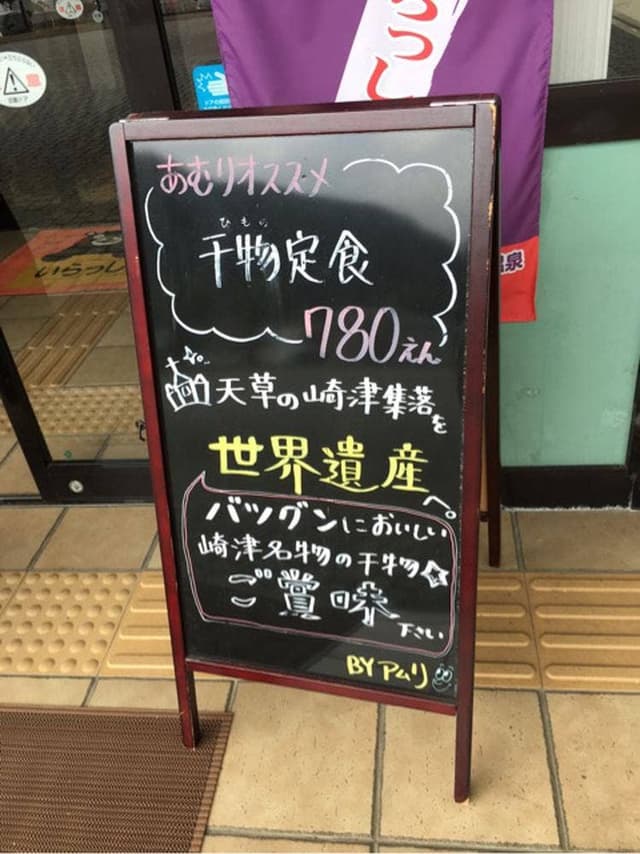 らっし
温泉
いらっし
あむりオススメ
ひもの
干物定食
780えん
天草の崎津集落を
世界遺産へ。
バツグンにおいしい
崎津名物の干物☆
ご賞味
下さい
BY アムリ